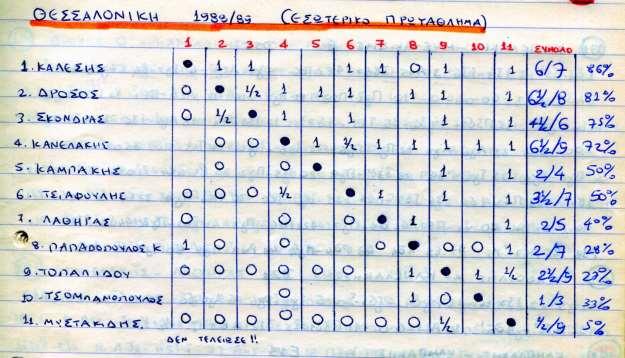 ΘΕΣΣΑΛΟΝΙΚΗ 1988/89 (ΕΣΩΤΕΡΙΚΟ ΠΡΩΤΑΘΛΗΜΑ)
1 2 3 4 5 6 7 8 9 10 11 ΣΥΝΟΛΟ
1. ΚΑΛΕΣΗΣ ● 1 1 1 1 0 1 1 6/7 86%
2. ΔΡΟΣΟΣ 0 ● ½ 1 1 1 1 1 1 6½/8 81%
3. ΣΚΟΝΔΡΑΣ 0 ½ ● 1 1 1 1 4½/6 75%
4. ΚΑΝΕΛΑΚΗΣ 0 0 ● 1 ½ 1 1 1 1 1 6½/9 72%
5. ΚΑΜΠΑΚΗΣ 0 0 ● 1 1 2/4 50%
6. ΤΣΙΑΦΟΥΛΗΣ 0 0 0 ½ ● 1 1 1 3½/7 50%
7. ΛΑΘΗΡΑΣ 0 0 0 ● 1 1 2/5 40%
8. ΠΑΠΑΔΟΠΟΥΛΟΣ Κ 1 0 0 0 ● 0 0 1 2/7 28%
9. ΤΟΠΑΛΙΔΟΥ 0 0 0 0 0 0 1 ● 1 ½ 2½/9 27%
10. ΤΣΟΜΠΑΝΟΠΟΥΛΟΣ 0 1 0 ● 1/3 33%
11. ΜΥΣΤΑΚΙΔΗΣ. 0 0 0 0 0 0 0 0 ½ ● ½/9 5%
ΔΕΝ ΤΕΛΕΙΩΣΕ!!